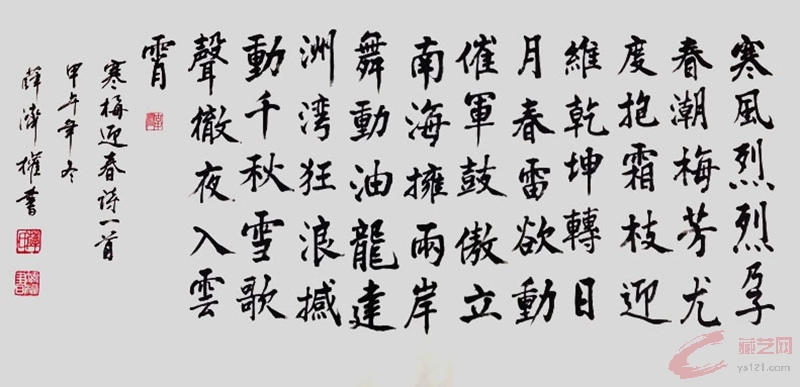 寒風烈烈孕
春潮梅芳尤
度抱霜枝迎
維乾坤轉日
月春雷欲動
催軍鼓傲立
南海擁兩岸
舞動油龍建
洲湾狂浪撼
動千秋雪歌
聲撤夜入雲
霄
寒梅迎春诗一首
甲午年冬
薛济權書
藏艺网
ys121.com